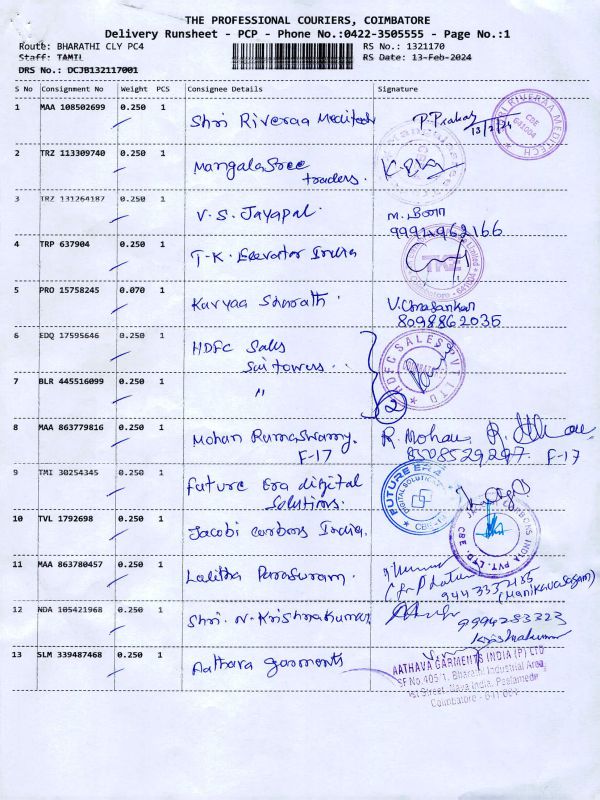 THE PROFESSIONAL COURIERS, COIMBATORE
Delivery Runsheet - PCP - Phone No.:0422-3505555 - Page No.:1
Route: BHARATHI CLY PC4
RS No.: 1321170
Staff: TAMIL
RS Date: 13-Feb-2024
DRS No.: DCJB132117001
S No Consignment No Weight PCS Consignee Details Signature
1 MAA 108502699 0.250 1 Shri Riveraa Meditech P. Prakash 13/2/24
SHRI RIVERAA MEDITECH
CBE
641004
2 TRZ 113309740 0.250 1 Mangala Sree
traders.
3 TRZ 131264187 0.250 1 V. S. Jayapal. M. Boon
9994962166
4 TRP 637904 0.250 1 T-K. Elevator India
TKE
Coimbatore
5 PRO 15758245 0.070 1 Kavyaa Sharath. V. Umasankar
8098862035
6 EDQ 17595646 0.250 1 HDFC Sales
Sai towers ..
HDFC SALES PVT LTD
7 BLR 445516099 0.250 1 "
2
8 MAA 863779816 0.250 1 Mohan Ramaswamy. R. Mohan
F-17 8508529297. F-17
9 TMI 30254345 0.250 1 Future Era digital
Solutions.
FUTURE ERA
DIGITAL SOLUTIONS
10 TVL 1792698 0.250 1 Jacobi carbons India.
CARBONS INDIA PVT. LTD. CBE
11 MAA 863780457 0.250 1 Lalitha Parasuram.
9443332185
(Manikavasagam)
12 NDA 105421968 0.250 1 Shri. N. Krishnakumar
9994283323
Krishnakumar
13 SLM 339487468 0.250 1 Aathava garments
AATHAVA GARMENTS INDIA (P) LTD
SF No.405/1, Bharathi Industrial Area,
1st Street, Nava India, Peelamedu
Coimbatore - 641 004